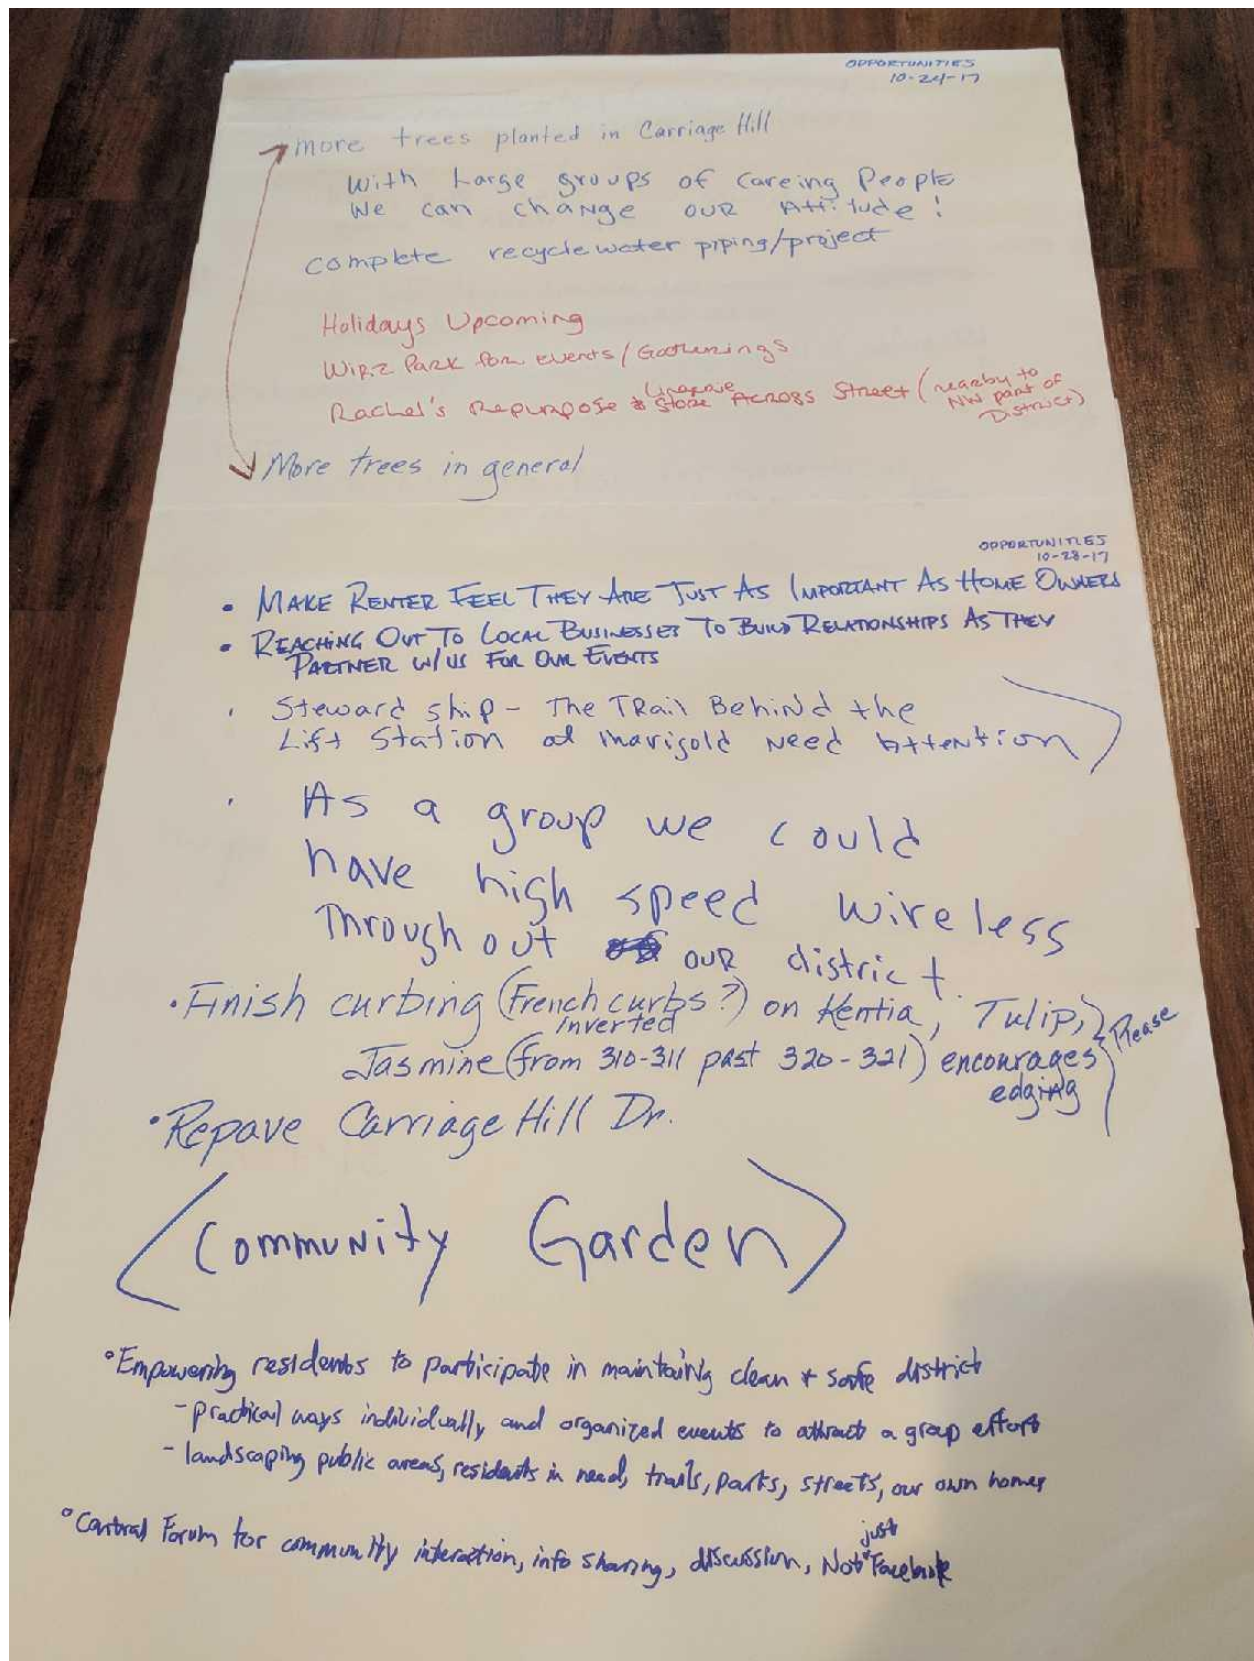 OPPORTUNITIES
10-24-17
more trees planted in Carriage Hill
With Large groups of Careing People
We can change our Attitude!
complete recycle water piping/project
Holidays Upcoming
Wirz Park for events/Gatherings
Rachel's Repurpose & Store Across Street (nearby to
NW part of
District)
More trees in general
OPPORTUNITIES
10-28-17
• MAKE RENTER FEEL THEY ARE JUST AS IMPORTANT AS HOME OWNERS
• REACHING OUT TO LOCAL BUSINESSES TO BUILD RELATIONSHIPS AS THEY
PARTNER W/US FOR OUR EVENTS
. Steward ship - The TRail Behind the
Lift Station at Marigold Need Attention
. As a group we could
have high speed wireless
Through out our district.
• Finish curbing (French curbs?) on Kentia, Tulip,
inverted
Jasmine (from 310-311 past 320-321) encourages
edging
Please
• Repave Carriage Hill Dr.
Community Garden
• Empowering residents to participate in maintaining clean + safe district
- practical ways individually and organized events to attract a group effort
- landscaping public areas, residents in need, trails, parks, streets, our own homes
just
• Central Forum for community interaction, info sharing, discussion, Not Facebook